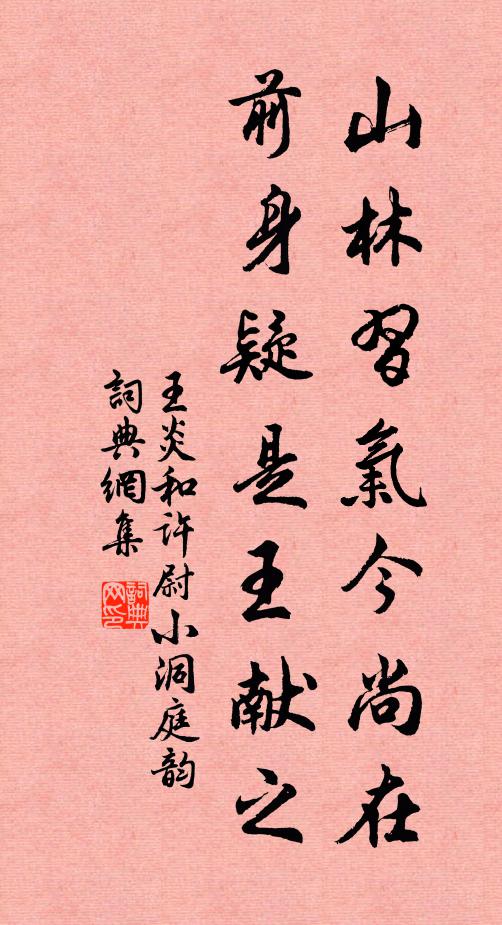 山林習氣今尚在
前身疑是王献之
王炎和许尉小洞庭韵
詞典網集
詞典网印